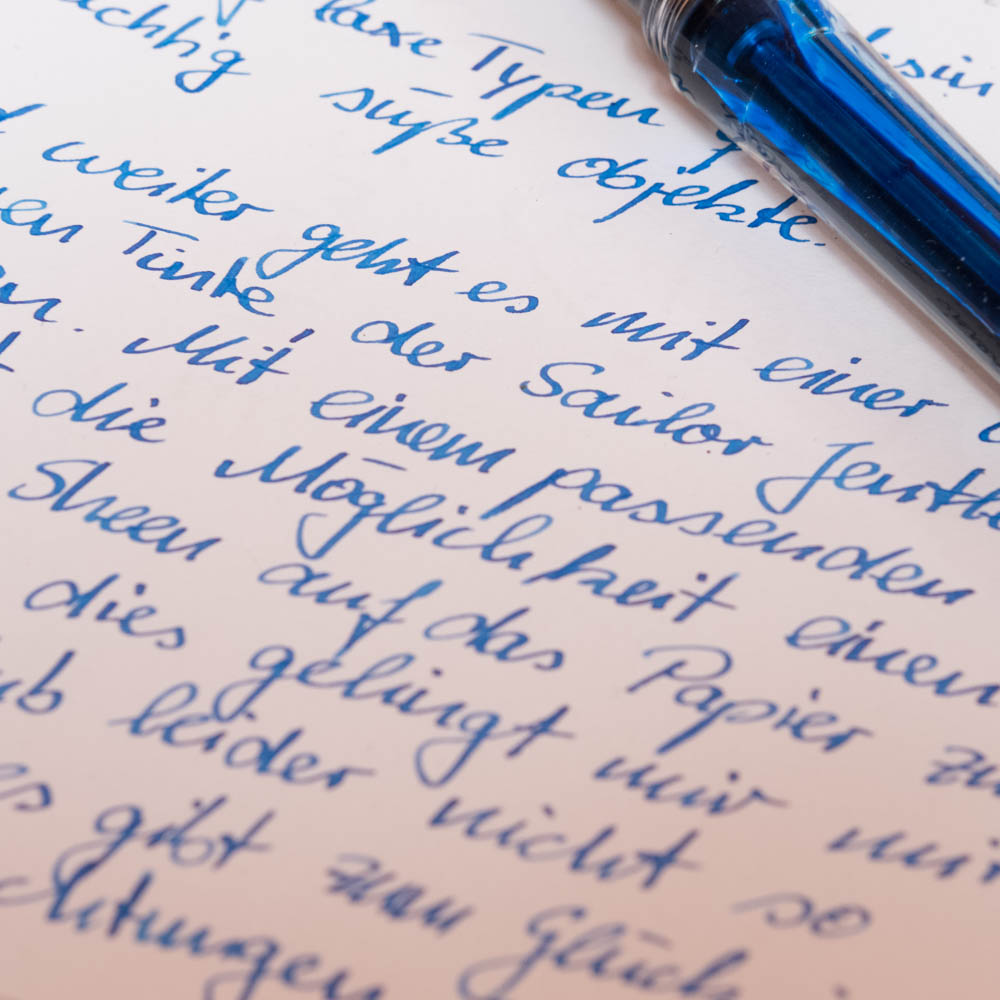 laxe Typen
süße objekte.
weiter geht es mit einer
Tinte, der Sailor Jentle
Mit einem passenden
die Möglichkeit einen
Sheen auf das Papier zu
dies gelingt mir mit
leider nicht so
es gibt zum Glück